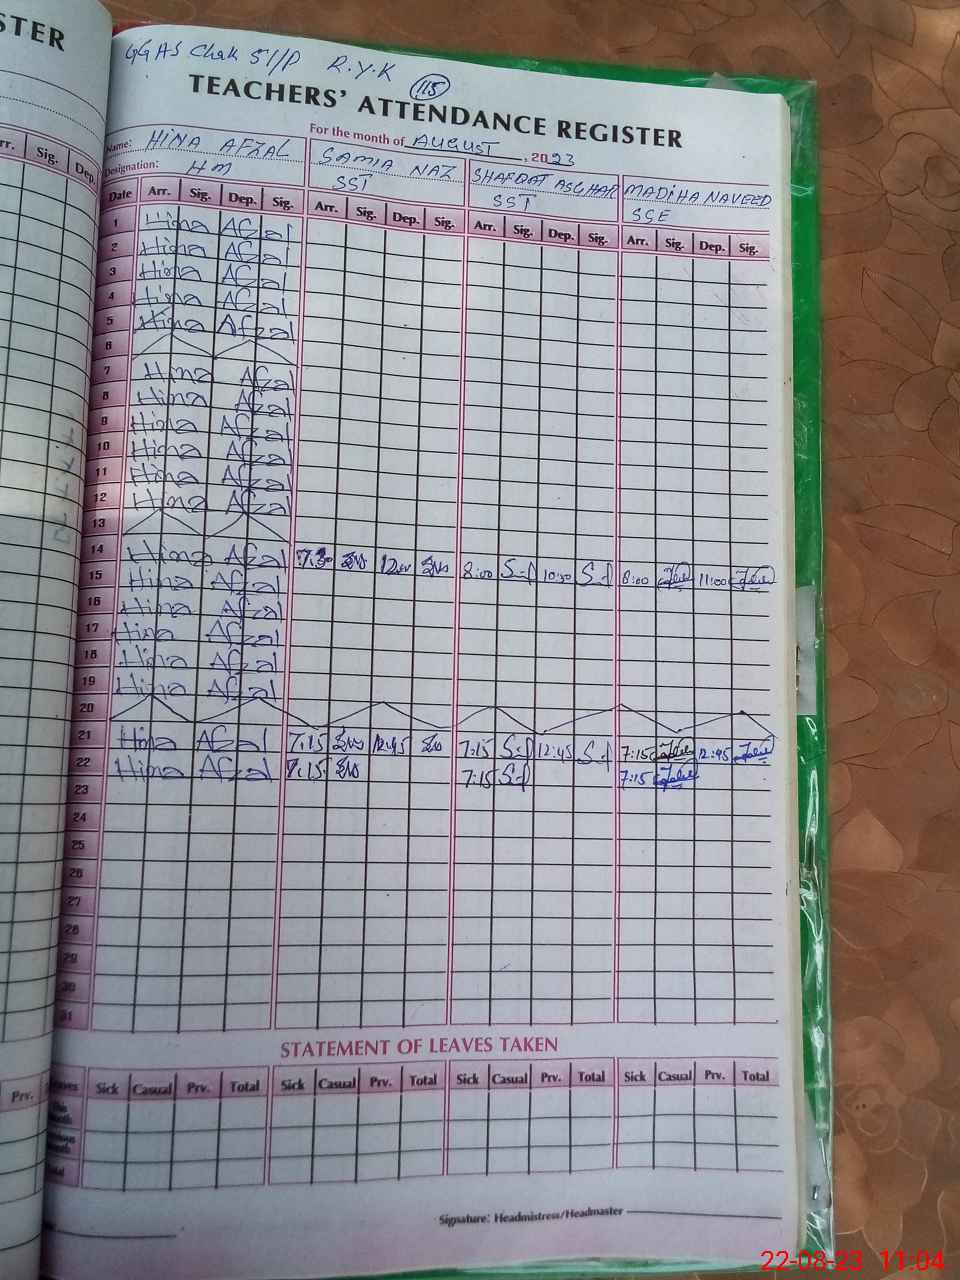 STER
GGHS Chak 51/P R.Y.K
115
TEACHERS' ATTENDANCE REGISTER
For the month of AUGUST, 2023
Name: HINA AFZAL SAMIA NAZ SHAFQAT ASGHAR MADIHA NAVEED
Designation: HM SST SST SSE
Arr. Sig. Dep.
Date Arr. Sig. Dep. Sig. Arr. Sig. Dep. Sig. Arr. Sig. Dep. Sig. Arr. Sig. Dep. Sig.
1 Hina Afzal
2 Hina Afzal
3 Hina Afzal
4 Hina Afzal
5 Hina Afzal
6
7 Hina Afzal
8 Hina Afzal
9 Hina Afzal
10 Hina Afzal
11 Hina Afzal
12 Hina Afzal
13
14 Hina Afzal 7:30 8:00 S-f 10:30 S-f 8:00 11:00
15 Hina Afzal
16 Hina Afzal
17 Hina Afzal
18 Hina Afzal
19 Hina Afzal
20
21 Hina Afzal 7:15 12:45 7:15 S-f 12:45 S-f 7:15 12:45
22 Hina Afzal 7:15 7:15 S-f 7:15
23
24
25
26
27
28
29
30
31
STATEMENT OF LEAVES TAKEN
Prv.
Leaves Sick Casual Prv. Total Sick Casual Prv. Total Sick Casual Prv. Total Sick Casual Prv. Total
Signature: Headmistress/Headmaster
22-08-23 11:04